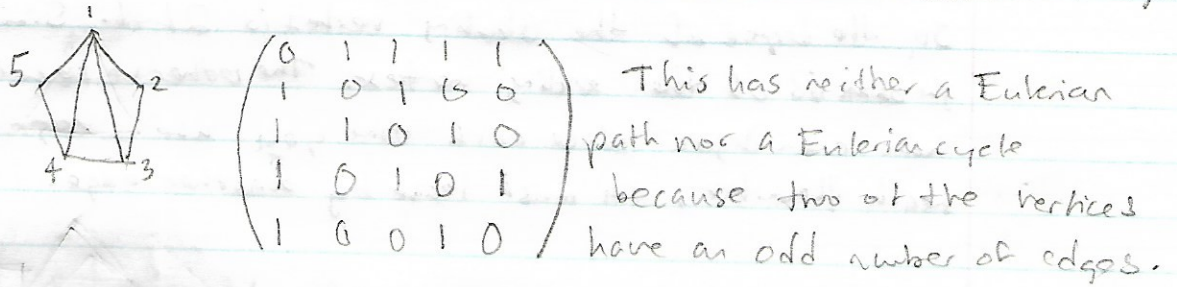 1
5
2
4
3
0 1 1 1 1
1 0 1 0 0
1 1 0 1 0
1 0 1 0 1
1 0 0 1 0
This has neither a Eulerian
path nor a Eulerian cycle
because two of the vertices
have an odd number of edges.